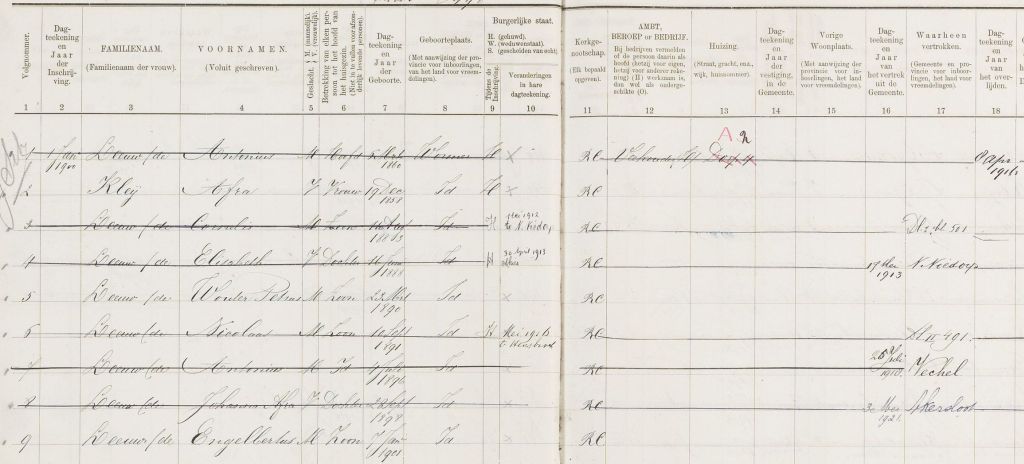 Volgnommer.
Dagteekening en Jaar der Inschrijving.
FAMILIENAAM.
(Familienaam der vrouw).
VOORNAMEN.
(Voluit geschreven).
Geslacht: M. (mannelijk). V. (vrouwelijk).
Betrekking van elken persoon tot het hoofd van het huisgezin.
Dagteekening en Jaar der Geboorte.
Geboorteplaats.
(Met aanwijzing der provincie voor inboorlingen, van het land voor vreemdelingen).
Burgerlijke staat.
H. (gehuwd).
W. (weduwenstaat).
S. (gescheiden van echt).
Tijdens de Inschrijving.
Veranderingen in hare dagteekening.
Kerkgenootschap.
(Elk bepaald opgeven).
AMBT, BEROEP or BEDRIJF.
Huizing.
(Straat, gracht, enz., wijk, huisnommer).
Dagteekening en Jaar der vestiging, in de Gemeente.
Vorige Woonplaats.
(Met aanwijzing der provincie voor inboorlingen, van het land voor vreemdelingen).
Dagteekening en Jaar van het vertrek uit de Gemeente.
Waarheen vertrokken.
(Gemeente en provincie voor inboorlingen, het land voor vreemdelingen).
Dagteekening en Jaar van het overlijden.
1 2 3 4 5 6 7 8 9 10 11 12 13 14 15 16 17 18
1 1 Jan 1900 Leeuw (de Antonius M Hoofd 1860 Wormer H x RC Veehouder A. 2 8 Apr
2 Kley Afra V Vrouw 19 Dec 1858 Id H x RC
3 Leeuw (de Cornelis M Zoon Id H Mei 1912 N. Niedorp RC Dl 2 bl 501
4 Leeuw (de Elisabeth V Dochter 1888 Id H 30 April 1913 RC 17 Mei 1913 N. Niedorp
5 Leeuw (de Wouter Petrus M Zoon 23 Mrt 1890 Id x RC
6 Leeuw (de Nicolaas M Zoon 10 Sept 1891 Id H Mei 1916 RC Dl II 491
7 Leeuw (de Antonius M Id 4 Juli 1896 Id RC 25 Juli 1910. Vechel
8 Leeuw (de Johanna Afra V Dochter 22 Sept Id RC 30 Mei 1921 Akersloot
9 Leeuw (de Engelbertus M Zoon 7 Jan 1901 Id x RC